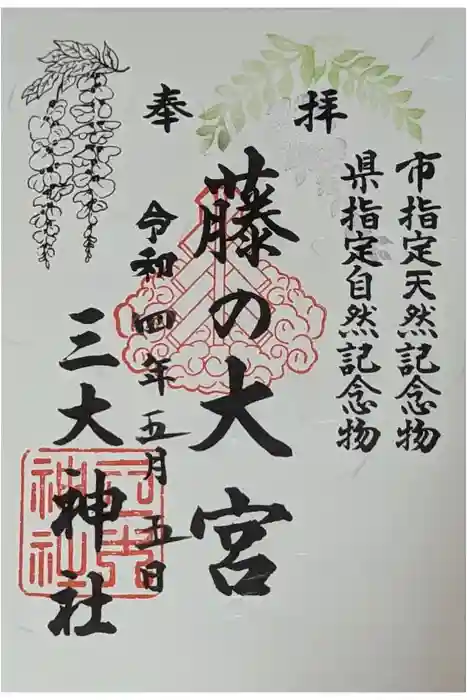 奉拝
市指定天然記念物
県指定自然記念物
藤の大宮
令和四年五月五日
三大神社